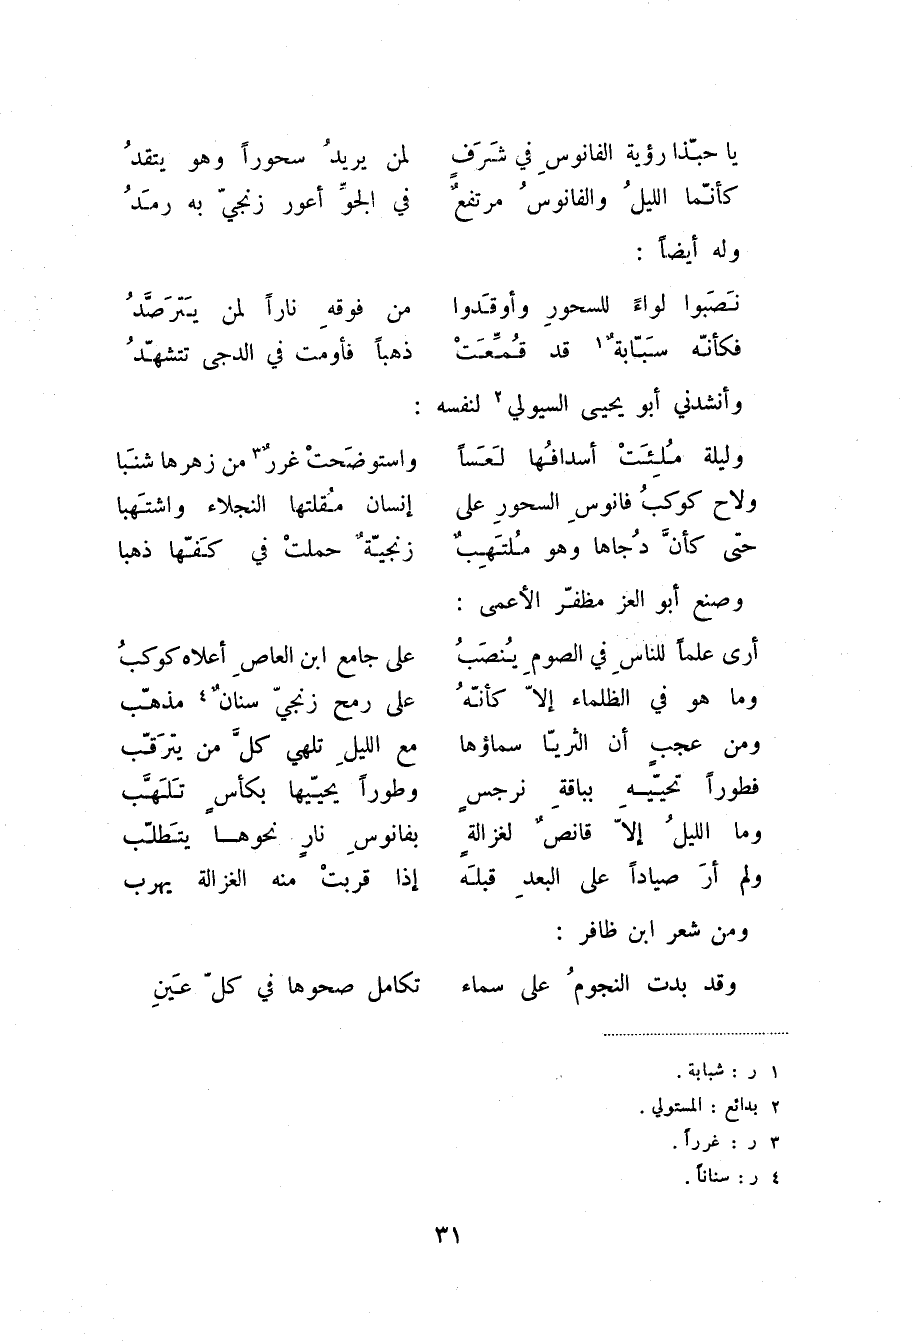 يا حبّذا رؤية الفانوسِ في شَرَفٍ لمن يريدُ سحوراً وهو يتقدُ
كأنّما الليلُ والفانوسُ مرتفعٌ في الجوِّ أعور زنجيّ به رمَدُ
وله أيضاً :
نَصَبوا لواءً للسحورِ وأوقَدوا من فوقهِ ناراً لمن يَتَرَصَّدُ
فكأنّه سَبّابةٌ١ قد قُمِّعَتْ ذهباً فأومت في الدجى تتشهّدُ
وأنشدني أبو يحيى السيولي٢ لنفسه :
وليلة مُلِئَتْ أسدافُها لَعَساً واستوضَحتْ غررٌ٣ من زهرها شنَبا
ولاح كوكبُ فانوسِ السحورِ على إنسان مُقلتها النجلاء واشتَهبا
حتّى كأنَّ دُجاها وهو مُلتَهِبٌ زنجيّةٌ حملتْ في كَفّها ذهبا
وصنع أبو العز مظفّر الأعمى :
أرى علماً للناسِ في الصومِ يُنصَبُ على جامع ابن العاصِ أعلاه كوكبُ
وما هو في الظلماء إلاّ كأنّهُ على رمح زنجيّ سنانٌ٤ مذهّب
ومن عجبٍ أن الثريّا سماؤها مع الليلِ تلهي كلَّ من يترَقّب
فطوراً تحيّيهِ بباقةِ نرجسٍ وطوراً يحيّيها بكأسٍ تَلَهَّب
وما الليلُ إلاّ قانصٌ لغزالةٍ بفانوسِ نارٍ نحوها يتَطلّب
ولم أرَ صياداً على البعدِ قبلَه إذا قربتْ منه الغزالة يهرب
ومن شعر ابن ظافر :
وقد بدت النجومُ على سماء تكامل صحوها في كلّ عَينِ
١ ر : شبابة .
٢ بدائع : المستولي .
٣ ر : غرراً .
٤ ر : سناناً .
٣١